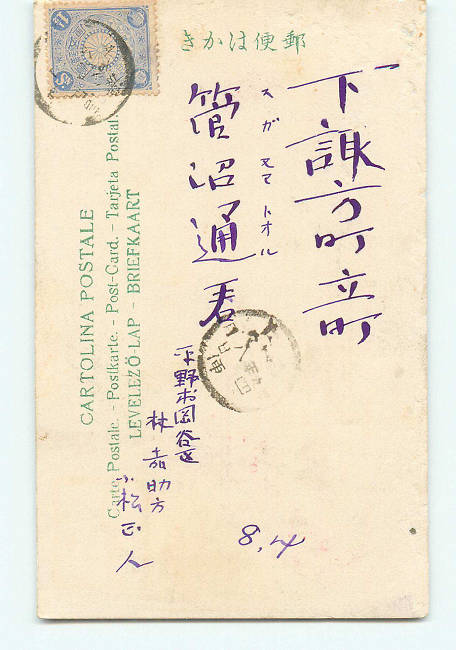 きかは便郵
下諏訪町立町
菅沼通君
スガヌマトオル
平野村岡谷区
林嘉助方
小松正人
8,4
CARTOLINA POSTALE
Carte Postale. - Postkarte. - Post-Card. - Tarjeta Postal.
LEVELEZŐ-LAP - BRIEFKAART